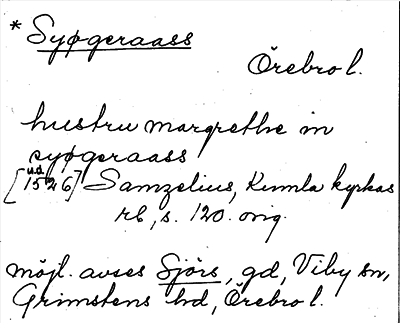 * Syøgeraass
Örebro l.
hustru margrethe in
syøgeraass
[u.d. 1526] Samzelius, Kumla kyrkas
rb, s. 120. orig.
möjl. avses Sjörs, gd, Viby sn,
Grimstens hd, Örebro l.